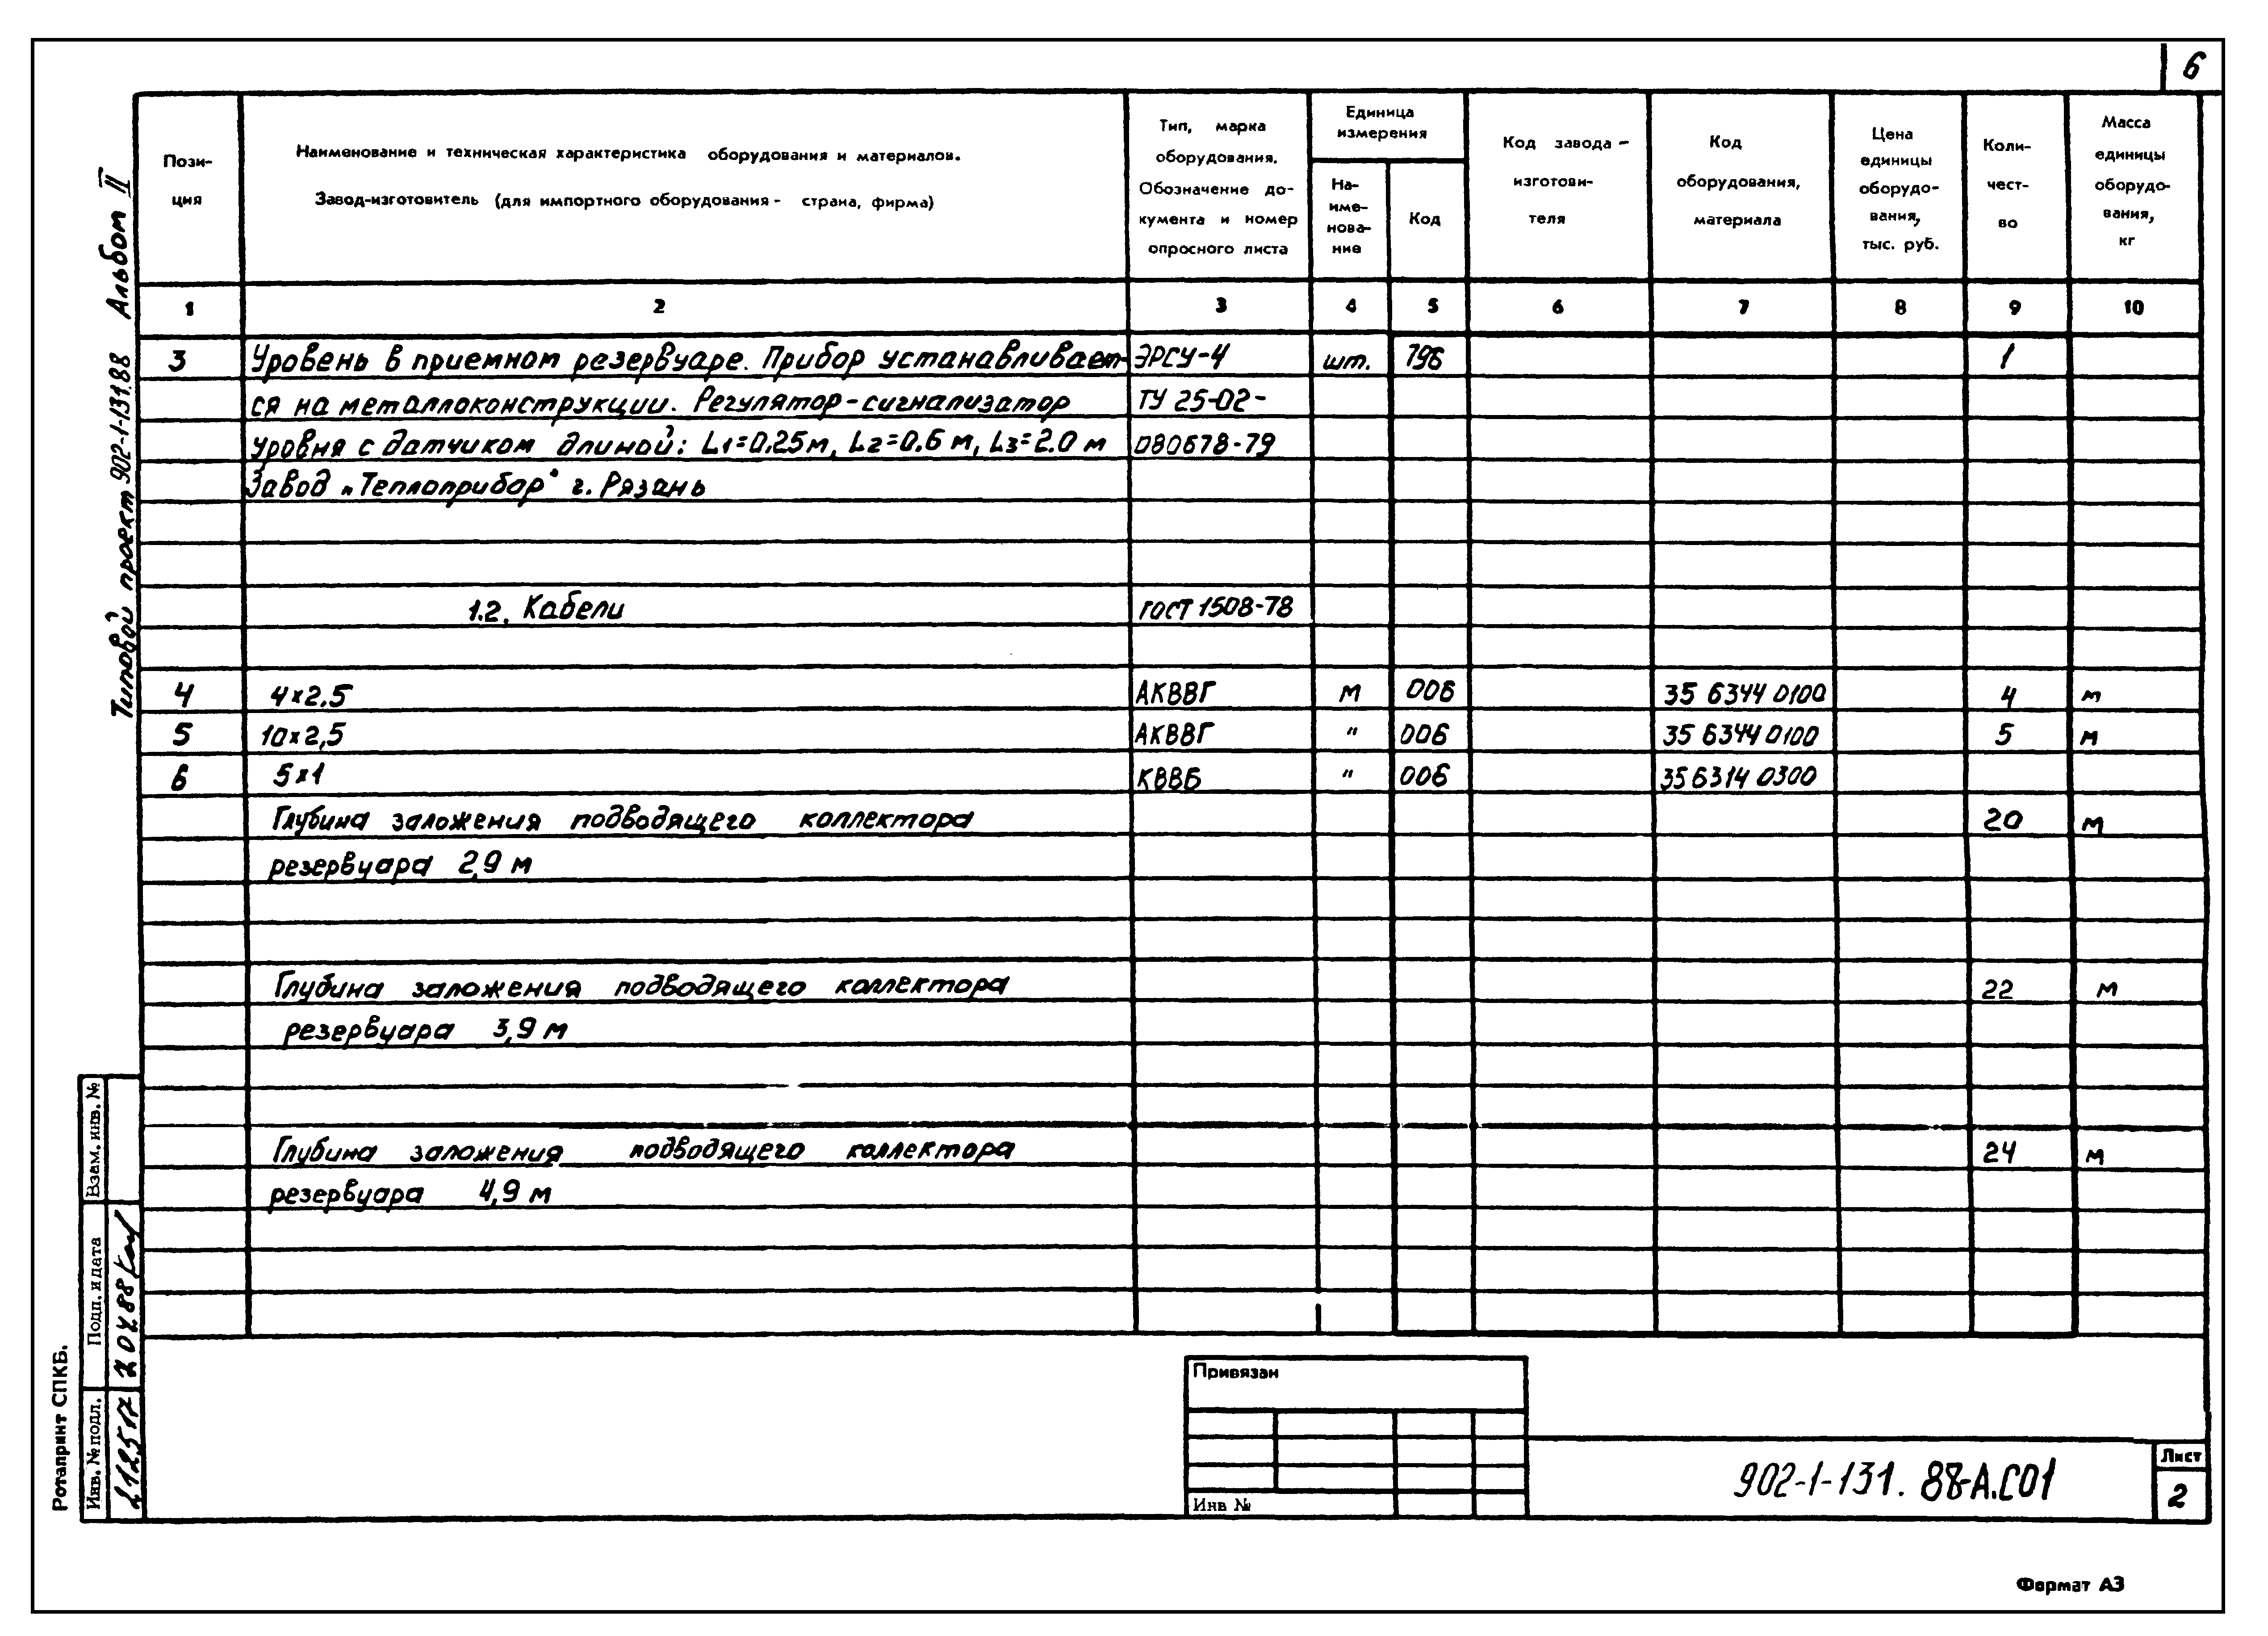 6
Типовой проект 902-1-131.88 Альбом II
Пози-
ция
Наименование и техническая характеристика оборудования и материалов.
Завод-изготовитель (для импортного оборудования - страна, фирма)
Тип, марка
оборудования.
Обозначение до-
кумента и номер
опросного листа
Единица
измерения
На-
име-
нова-
ние
Код
Код завода-
изготови-
теля
Код
оборудования,
материала
Цена
единицы
оборудо-
вания,
тыс. руб.
Коли-
чест-
во
Масса
единицы
оборудо-
вания,
кг
1 2 3 4 5 6 7 8 9 10
3 Уровень в приемном резервуаре. Прибор устанавливает- ЭРСУ-4 шт. 796 1
ся на металлоконструкции. Регулятор-сигнализатор ТУ 25-02-
уровня с датчиком длиной: L1=0.25м, L2=0.6 м, L3=2.0 м 080678-79
Завод „Теплоприбор" г. Рязань
1.2. Кабели ГОСТ 1508-78
4 4х2,5 АКВВГ м 006 35 6344 0100 4 м
5 10х2,5 АКВВГ " 006 35 6344 0100 5 м
6 5х1 КВВБ " 006 35 6314 0300
Глубина заложения подводящего коллектора 20 м
резервуара 2,9 м
Глубина заложения подводящего коллектора 22 м
резервуара 3,9 м
Глубина заложения подводящего коллектора 24 м
резервуара 4,9 м
Взам. инв. №
Подп. и дата
Инв. № подл.
Ротапринт СПКБ.
Привязан
Инв №
902-1-131. 88-А.СО1
Лист
2
Формат А3